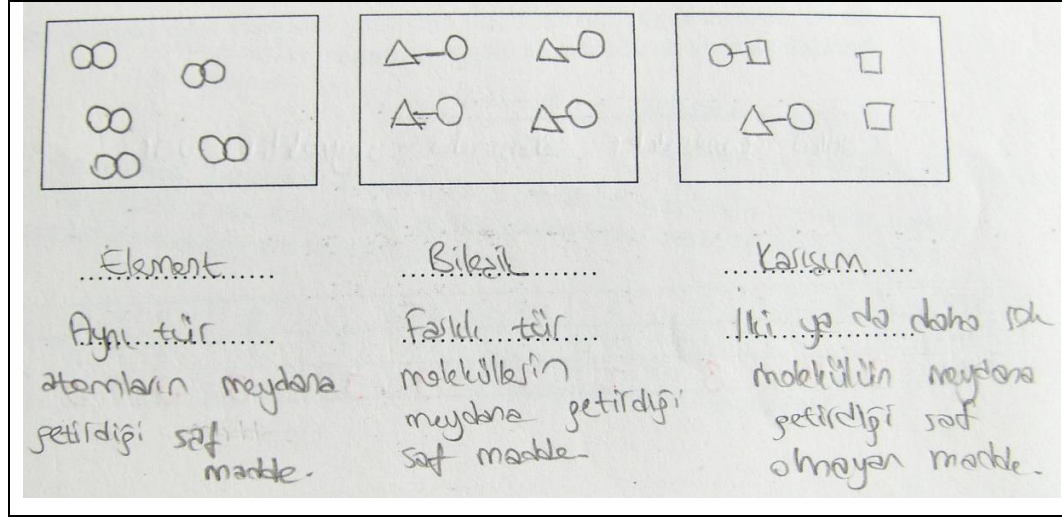 Element
Aynı tür
atomların meydana
getirdiği saf
madde.
Bileşik
Farklı tür
moleküllerin
meydana getirdiği
saf madde.
Karışım
İki ya da daha çok
molekülün meydana
getirdiği saf
olmayan madde.